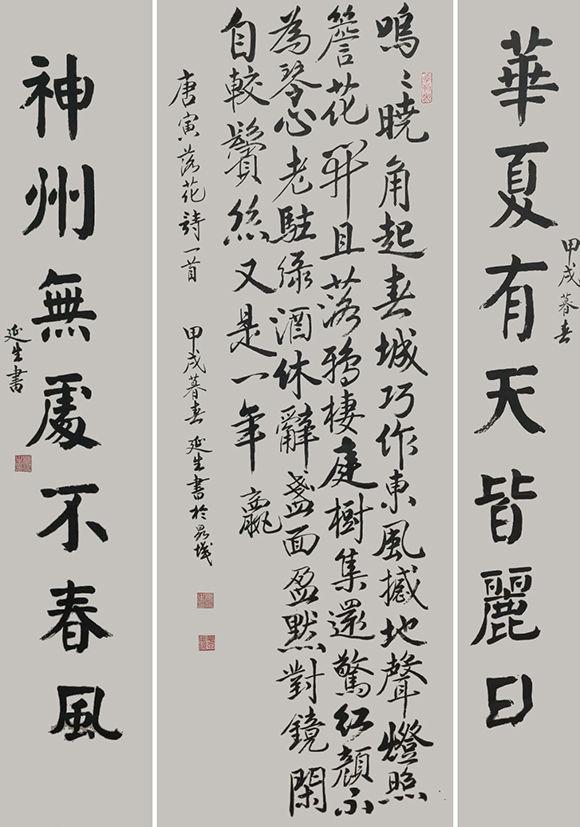 甲戌暮春
華夏有天皆麗日
嗚〻曉角起春城巧作東風撼地聲燈照
簷花開且落鴉棲庭樹集還驚紅顏不
為琴心老駐綠酒休辭盞面盈默對鏡閑
自較鬢絲又是一年贏
唐寅落花詩一首 甲戌暮春延生書於
神州無處不春風
延生書